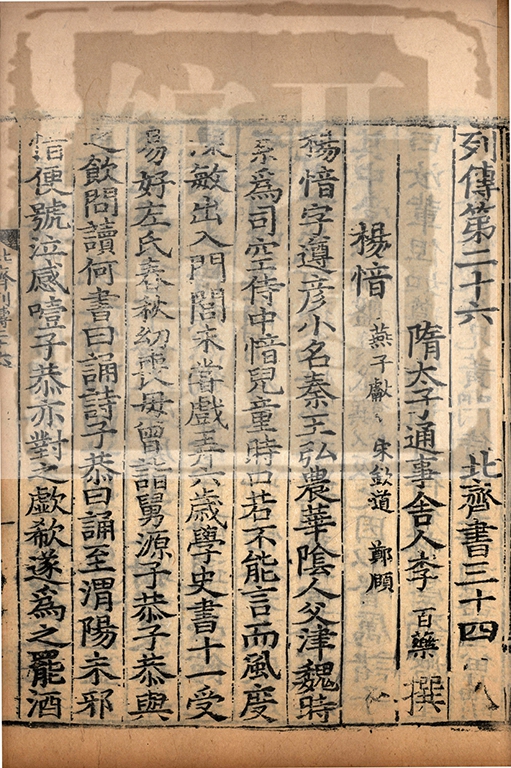 列傳第二十六 北齊書三十四
隋太子通事舍人李 百藥 撰
楊愔 燕子獻 宋欽道 鄭頤
楊愔字遵彥小名秦王弘農華陰人父津魏時
累爲司空侍中愔兒童時口若不能言而風度
深敏出入門閭未嘗戲弄六歲學史書十一受
易好左氏春秋幼喪母曾詣舅源子恭子恭與
之飲問讀何書曰誦詩子恭曰誦至渭陽未邪
愔便號泣感噎子恭亦對之歔欷遂爲之罷酒
北齊列傳